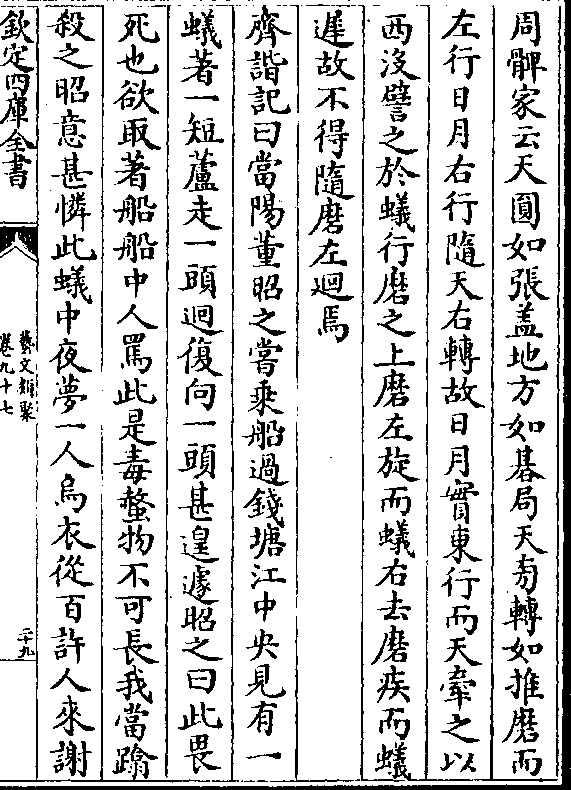 周髀家云天圓如張蓋地方如碁局天旁轉如推磨而
左行日月右行隨天右轉故日月實東行而天牽之以
西没譬之於蟻行磨之上磨左旋而蟻右去磨疾而蟻
遲故不得隨磨左迴焉
齊諧記曰當陽董昭之嘗乗船過錢塘江中央見有一
蟻著一短蘆走一頭迴復向一頭甚遑遽昭之曰此畏
死也欲取著船船中人罵此是毒螫物不可長我當蹹
殺之昭意甚憐此蟻中夜夢一人烏衣從百許人來謝
欽定四庫全書
藝文類聚
卷九十七
二十九